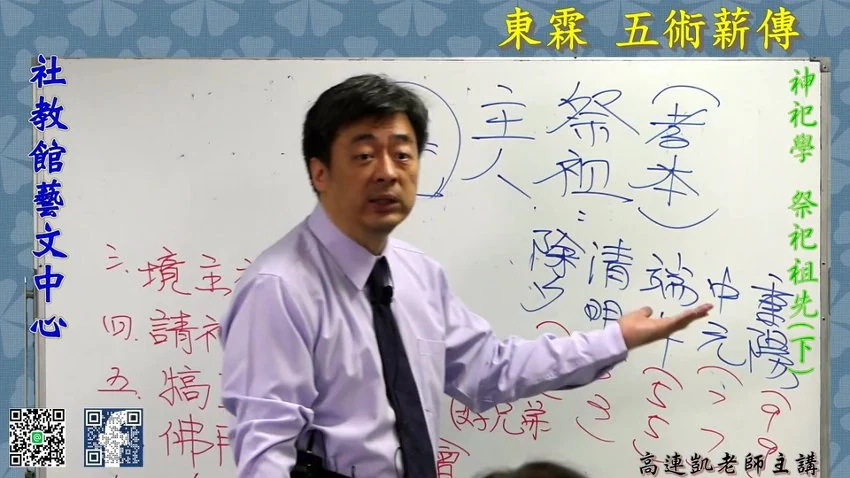 東霖 五術薪傳
社教館藝文中心
神祀學 祭祀祖先(下)
(孝本)
祭祖:
主人
除夕
清明
端午
中元
重陽
三.境主
四.請神
五.犒
佛
好兄弟
3
(5
5
(7
7
(9
9
高連凱老師主講